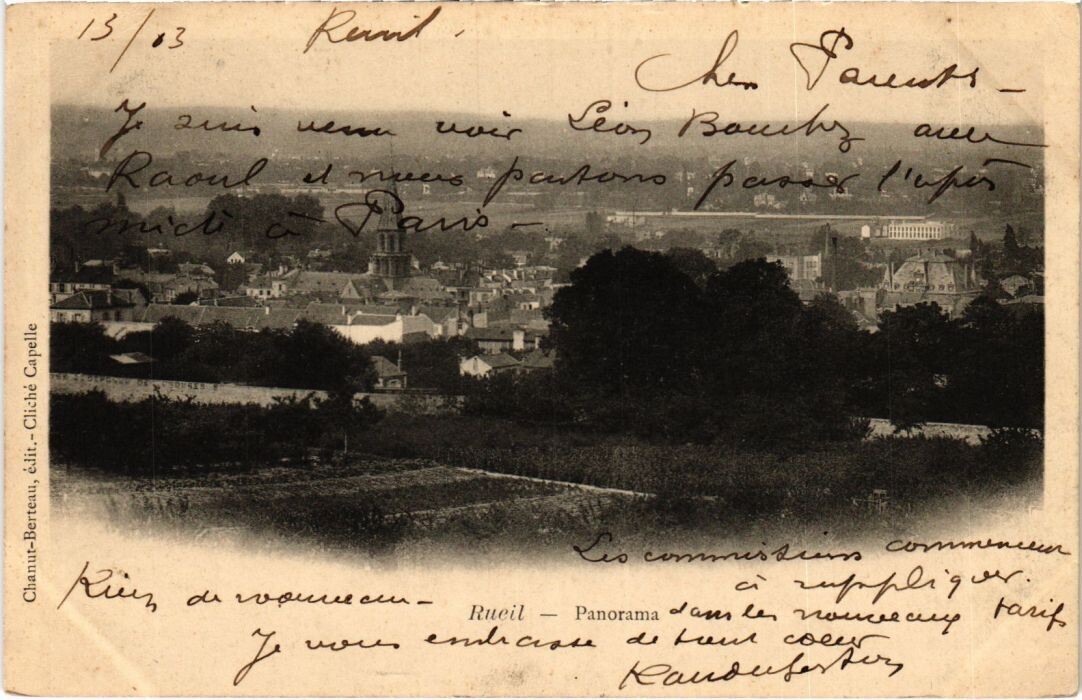 13/03 Rueil.
Chers Parents -
Je suis venu voir Léon avec
Raoul et nous partons passer l'après
midi à Paris -
Chanut-Berteau, édit. - Cliché Capelle
Rien de nouveau -
Les commissions commencent
à rappliquer.
dans les nouveaux tarifs
Rueil — Panorama
Je vous embrasse de tout coeur